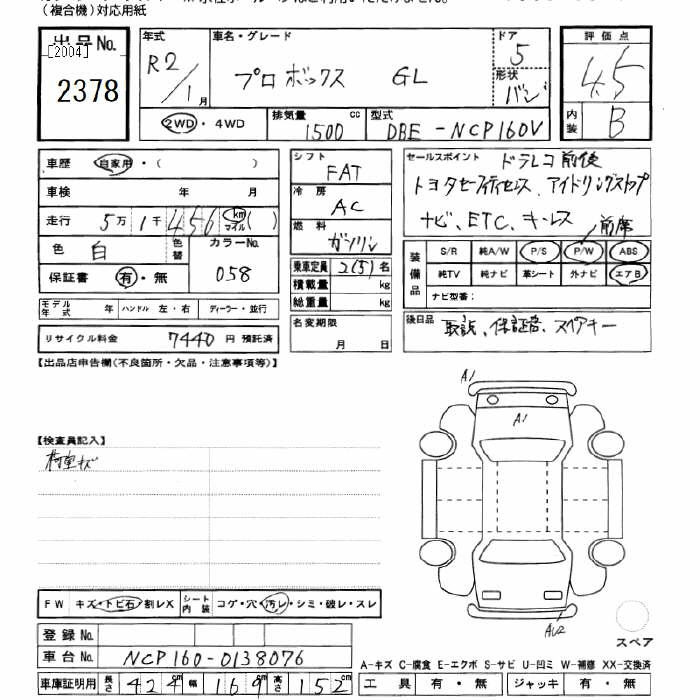 (複合機)対応用紙
出品No.
[2004]
2378
年式
R2/1月
車名・グレード
プロボックス GL
ドア
5
形状
バン
評価点
4.5
内装
B
2WD・4WD
排気量
1500 cc
型式
DBE-NCP160V
車歴 自家用・( )
車検 年 月
走行 5万1千456 km マイル ( )
色 白 色替 カラーNo. 058
保証書 有・無
シフト
FAT
冷房
AC
燃料
ガソリン
乗車定員 2(5)名
積載量 kg
総重量 kg
セールスポイント ドラレコ前後
トヨタセーフティセンス、アイドリングストップ
ナビ、ETC、キーレス 前席
装備品
S/R 純A/W P/S P/W ABS
純TV 純ナビ 革シート 外ナビ エアB
ナビ型番:
モデル年式 年 ハンドル 左・右 ディーラー・並行
リサイクル料金 7440 円 預託済
名変期限
月 日
後日品 取説、保証書、スペアキー
【出品店申告欄(不良箇所・欠品・注意事項等)】
A1
A1
【検査員記入】
荷室キズ
FW キズ・トビ石・割レX シート内装 コゲ・穴・汚レ・シミ・破レ・スレ
AU2
スペア
登録No.
車台No. NCP160-0138076
A-キズ C-腐食 E-エクボ S-サビ U-凹ミ W-補修 XX-交換済
車庫証明用 長さ 424cm 幅 169cm 高さ 152cm
工具 有・無 ジャッキ 有・無